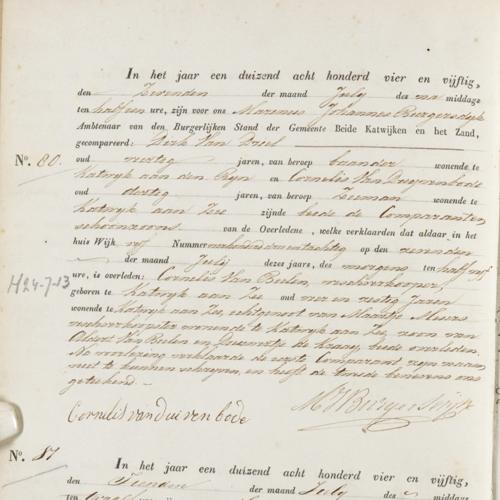 In het jaar een duizend acht honderd vier en vijftig,
den Zevenden der maand July des na middags
ten half een ure, zijn voor ons Marinus Johannes Burgersdyk
Ambtenaar van den Burgerlijken Stand der Gemeente Beide Katwijken en het Zand,
gecompareerd: Dirk Van Beel
N°. 80. oud veertig jaren, van beroep baander wonende te
Katwyk aan den Ryn en Cornelis Van Duyvenbode
oud dertig jaren, van beroep Zeeman wonende te
Katwyk aan Zee zijnde beide de Comparanten
schoonzoons van de Overledene, welke verklaarden dat aldaar, in het
huis Wijk vyf Nummer op den zevenden
H24-7-13
der maand July dezes jaars, des morgens ten half vyf
ure, is overleden: Cornelis Van Beelen, vischverkooper,
geboren te Katwyk aan Zee oud vier en zestig Jaren
wonende te Katwyk aan Zee, echtgenoot van Maartje
vischverkoopster wonende te Katwyk aan Zee, zoon van
Albert Van Beelen en de beide overleden.
Na voorlezing verklaarde de eerste Comparant zyn naam
niet te kunnen schryven, en heeft de tweede benevens ons
geteekend.
Cornelis van duivenbode
MJBurgersdijk
N°. 81
In het jaar een duizend acht honderd vier en vijftig,
den Tienden der maand July des middags